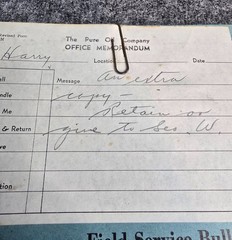 The Pure Oil Company
OFFICE MEMORANDUM
Harry
Location
Date
Message An extra
copy —
Retain or
give to Geo. W.
& Return
Me
Field Service Bull